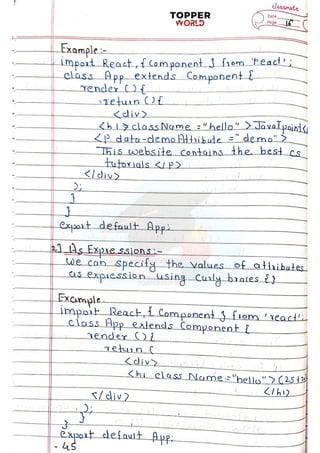 classmate
Date
Page 16
TOPPER
WORLD
Example:-
import React, { Component } from 'react';
class App extends Component {
render () {
return () {
<div>
<h1> className = "hello" > JavaTpoint
<p data-demo Attribute = "demo" >
This website contains the best cs
tutorials </p>
</div>
);
}
}
export default App;
2.] As Expressions:-
We can specify the values of attributes
as expression using curly braces { }
Example.
import React, { Component } from 'react';
class App extends Component {
render () {
return (
<div>
<h1 class Name = "hello" > (25+
</h1>
</div>
);
}
}
export default App;
- 45